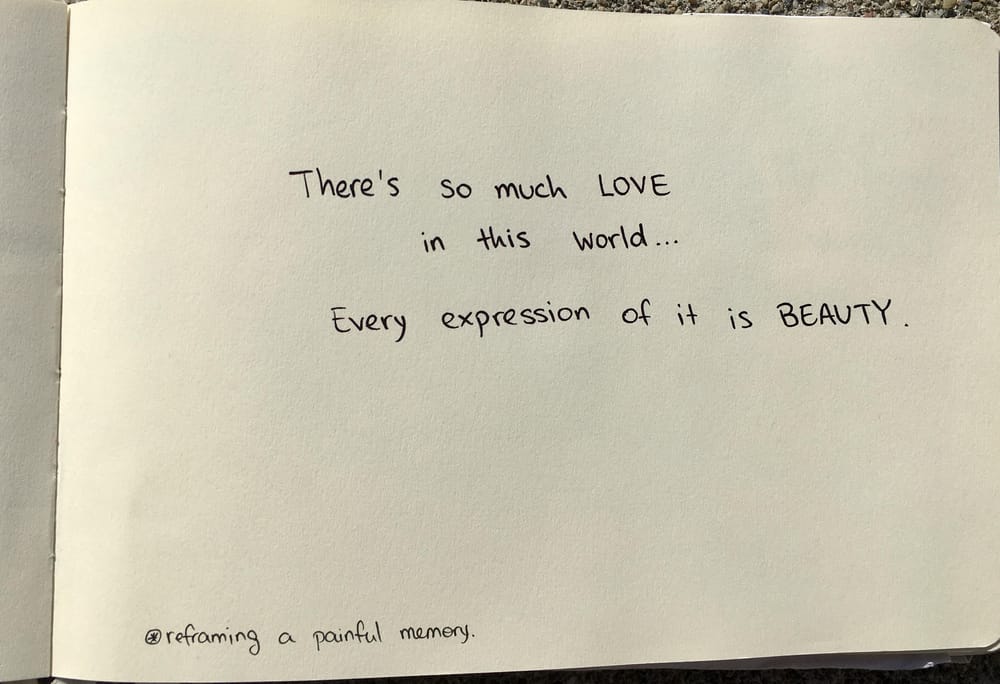 There's so much LOVE
in this world...
Every expression of it is BEAUTY.
⊛reframing a painful memory.